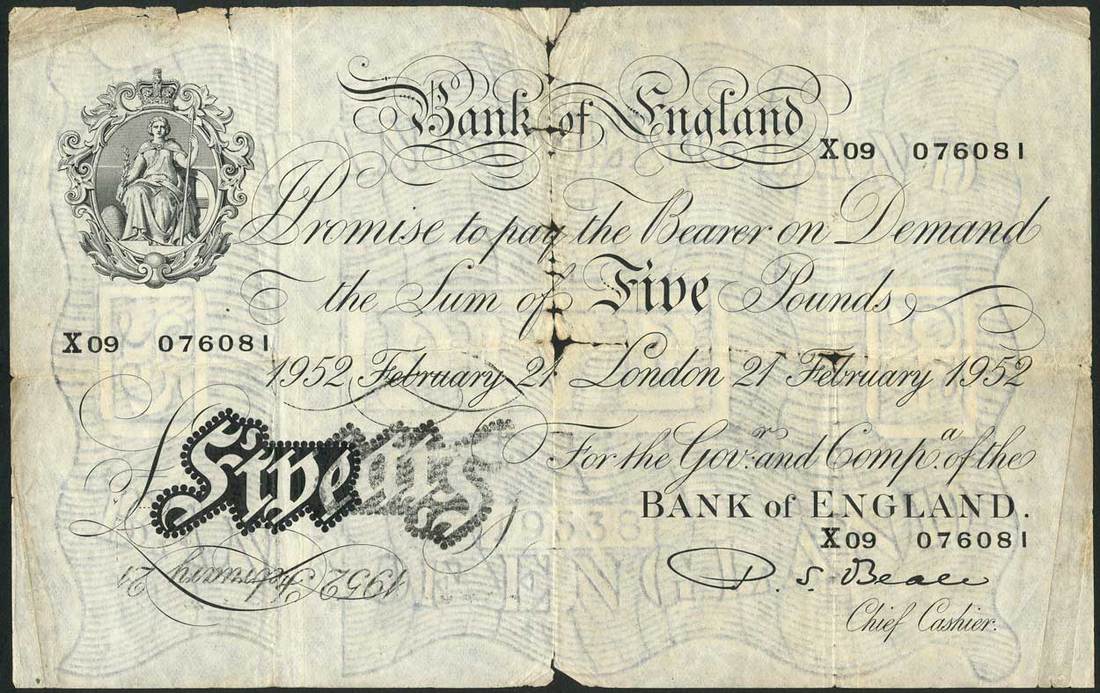 Bank of England
X09 076081
I Promise to pay the Bearer on Demand
the Sum of Five Pounds
X09 076081
1952 February 21 London 21 February 1952
Five
For the Gov.r and Comp.a of the
BANK of ENGLAND.
X09 076081
P. S. Beale
1952 February 21
Chief Cashier.